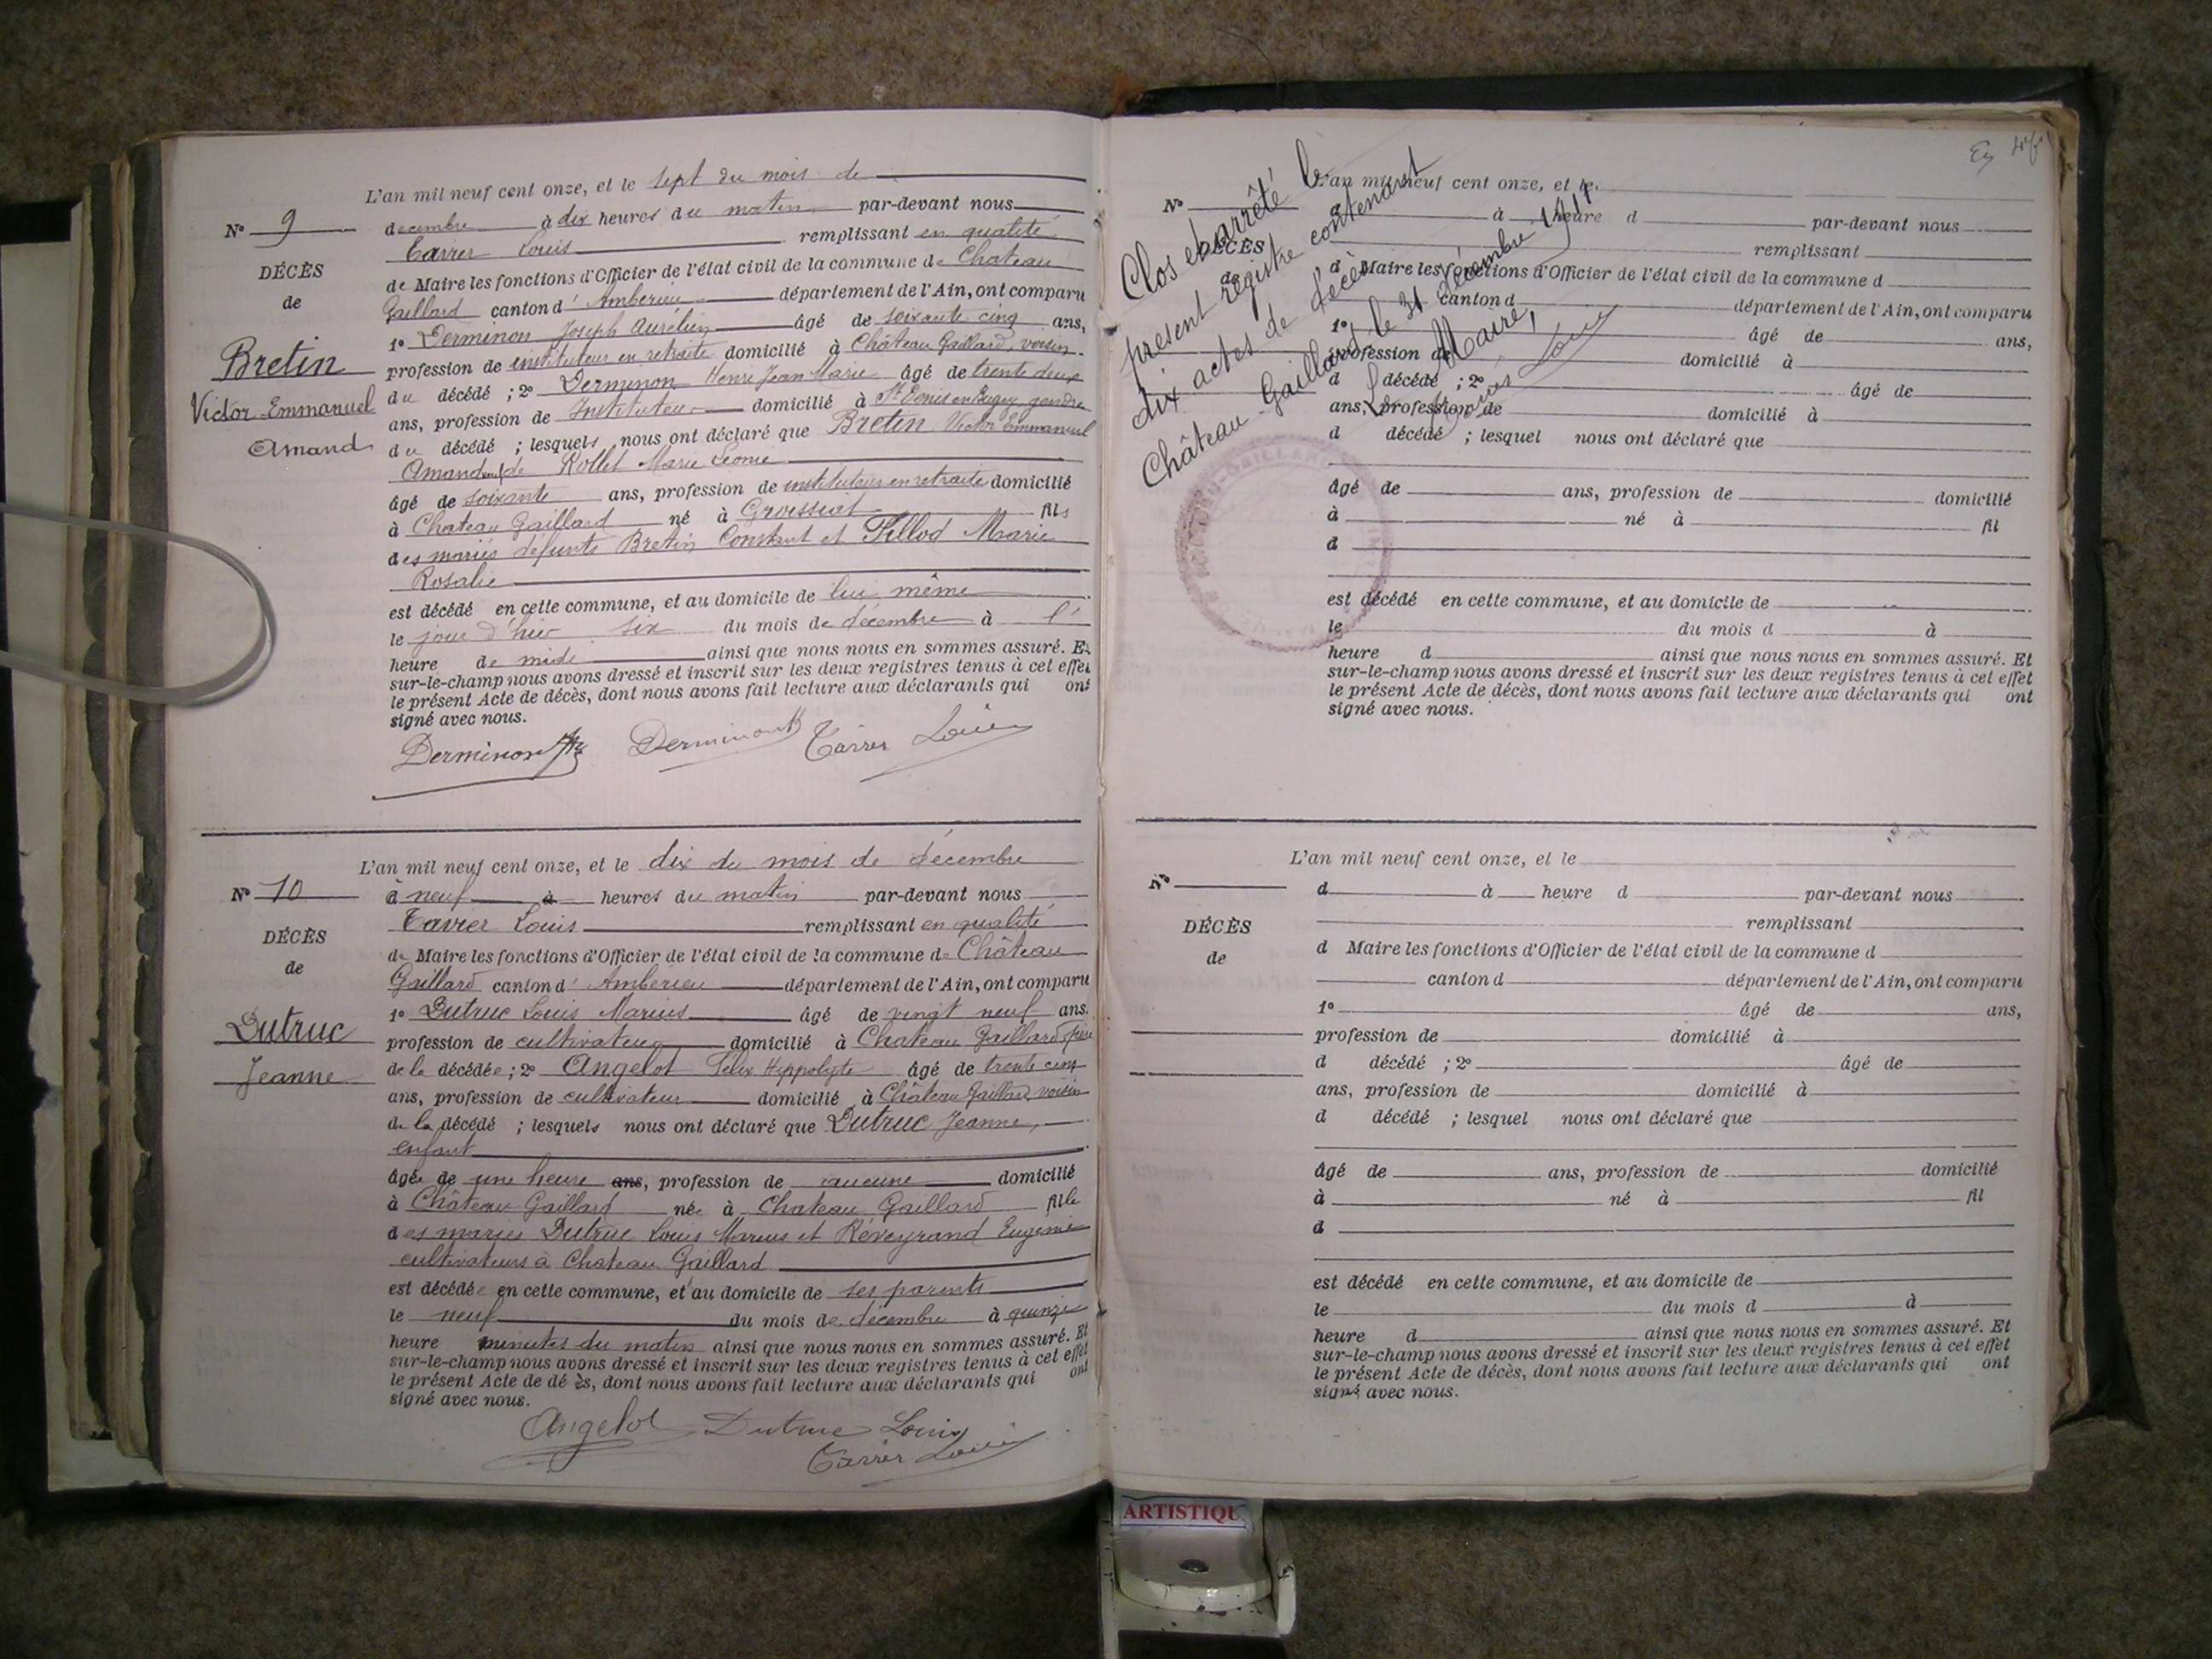 L'an mil neuf cent onze, et le sept du mois de
N° 9 decembre à dix heures du matin par-devant nous
Tavier Louis remplissant en qualité
DÉCÈS
de
de Maire les fonctions d'Officier de l'état civil de la commune de Chateau
Gaillard canton d'Ambérieu département de l'Ain, ont comparu
1° Derminon Joseph Aurélien âgé de soixante cinq ans,
Bretin
Victor Emmanuel
Amand
profession de instituteur en retraite domicilié à Château Gaillard, voisin
du décédé ; 2° Derminon Henri Jean Marie âgé de trente deux
ans, profession de Instituteur domicilié à St Denis en Bugey gendre
du décédé ; lesquels nous ont déclaré que Bretin Victor Emmanuel
Amand de Rollet Marie Leonie
âgé de soixante ans, profession de instituteur en retraite domicilié
à Chateau Gaillard né à Groissiat fils
des mariés défunts Bretin Constant et Pillod Marie
Rosalie
est décédé en cette commune, et au domicile de lui même
le jour d'hier six du mois de décembre à l'
heure de midi ainsi que nous nous en sommes assuré. Et
sur-le-champ nous avons dressé et inscrit sur les deux registres tenus à cet effet
le présent Acte de décès, dont nous avons fait lecture aux déclarants qui ont
signé avec nous.
Derminon Derminon Tavier Louis
L'an mil neuf cent onze, et le dix du mois de décembre
N° 10 à neuf à heures du matin par-devant nous
Tavier Louis remplissant en qualité
DÉCÈS
de
de Maire les fonctions d'Officier de l'état civil de la commune de Château
Gaillard canton d'Ambérieu département de l'Ain, ont comparu
1° Dutruc Louis Marius âgé de vingt neuf ans.
Dutruc
Jeanne
profession de cultivateur domicilié à Chateau Gaillard, père
de la décédée ; 2° Angelot Felix Hippolyte âgé de trente cinq
ans, profession de cultivateur domicilié à Château Gaillard, voisin
de la décédé ; lesquels nous ont déclaré que Dutruc Jeanne,
enfant
âgée de une heure ans, profession de aucune domicilié
à Château Gaillard née à Chateau Gaillard fille
des mariés Dutruc Louis Marius et Réveyrand Eugénie
cultivateurs à Chateau Gaillard
est décédée en cette commune, et au domicile de ses parents
le neuf du mois de décembre à quinze
heure minutes du matin ainsi que nous nous en sommes assuré. Et
sur-le-champ nous avons dressé et inscrit sur les deux registres tenus à cet effet
le présent Acte de dé ès, dont nous avons fait lecture aux déclarants qui ont
signé avec nous.
Angelot Dutruc Louis
Tavier Louis
Clos et arrêté le
présent registre contenant
dix actes de décès
Château Gaillard le 31 décembre 1911
Le Maire,
L'an mil neuf cent onze, et le
N° d à heure d par-devant nous
remplissant
DÉCÈS
de
d Maire les fonctions d'Officier de l'état civil de la commune d
canton d département de l'Ain, ont comparu
1° âgé de ans,
profession de domicilié à
d décédé ; 2° âgé de
ans, profession de domicilié à
d décédé ; lesquel nous ont déclaré que
âgé de ans, profession de domicilié
à né à fil
d
est décédé en cette commune, et au domicile de
le du mois d à
heure d ainsi que nous nous en sommes assuré. Et
sur-le-champ nous avons dressé et inscrit sur les deux registres tenus à cet effet
le présent Acte de décès, dont nous avons fait lecture aux déclarants qui ont
signé avec nous.
L'an mil neuf cent onze, et le
N° d à heure d par-devant nous
remplissant
DÉCÈS
de
d Maire les fonctions d'Officier de l'état civil de la commune d
canton d département de l'Ain, ont comparu
1° âgé de ans,
profession de domicilié à
d décédé ; 2° âgé de
ans, profession de domicilié à
d décédé ; lesquel nous ont déclaré que
âgé de ans, profession de domicilié
à né à fil
d
est décédé en cette commune, et au domicile de
le du mois d à
heure d ainsi que nous nous en sommes assuré. Et
sur-le-champ nous avons dressé et inscrit sur les deux registres tenus à cet effet
le présent Acte de décès, dont nous avons fait lecture aux déclarants qui ont
signé avec nous.
ARTISTIQU